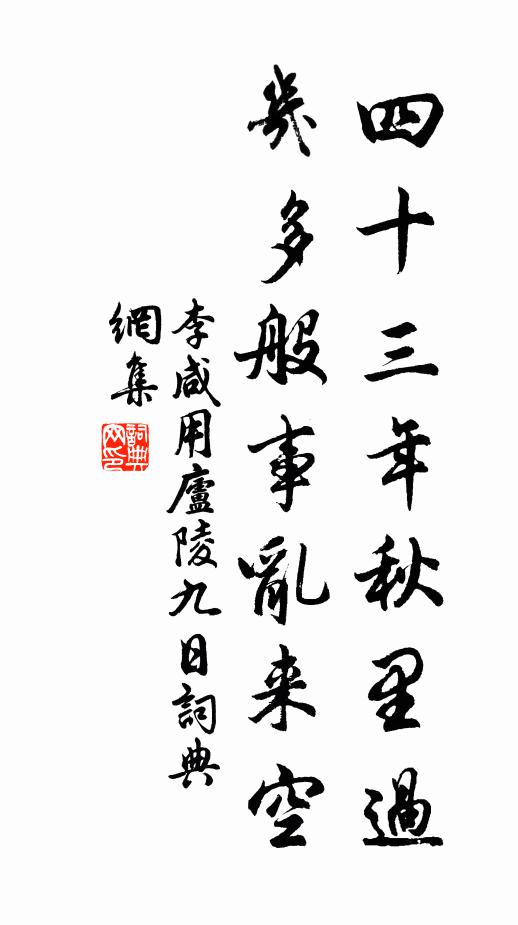 四十三年秋里過
幾多般事亂来空
李咸用廬陵九日詞典
網集
詞典網印